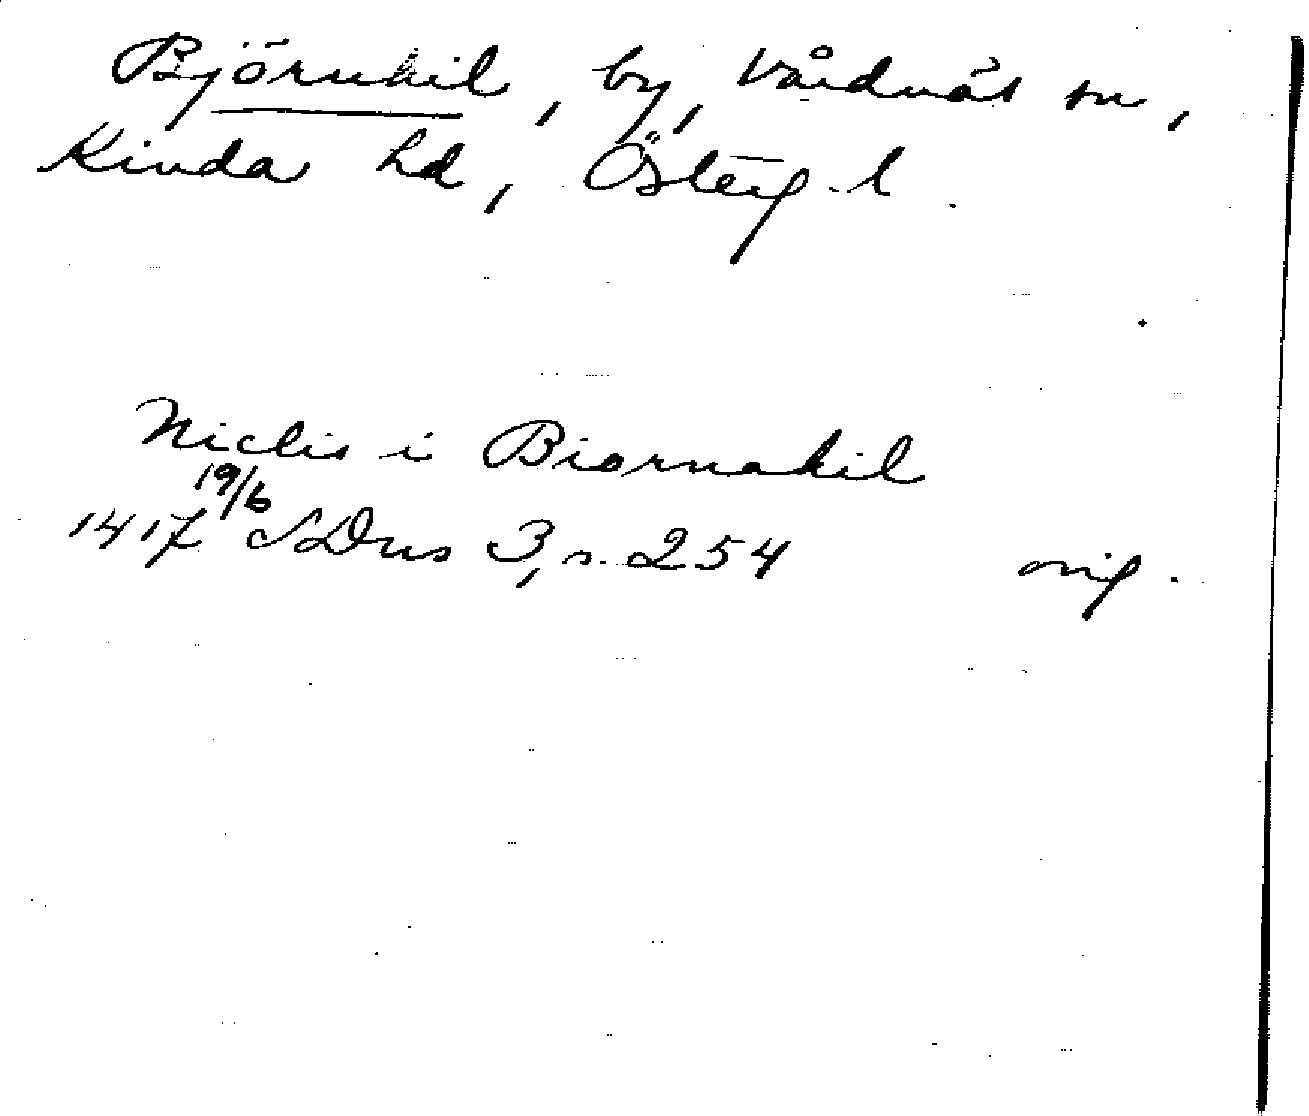 Björnkil, by, Vårdnäs sn,
Kinda hd, Österg. l.
Niclis i Biornakil
1417 19/6 SDns 3, s. 254 orig.